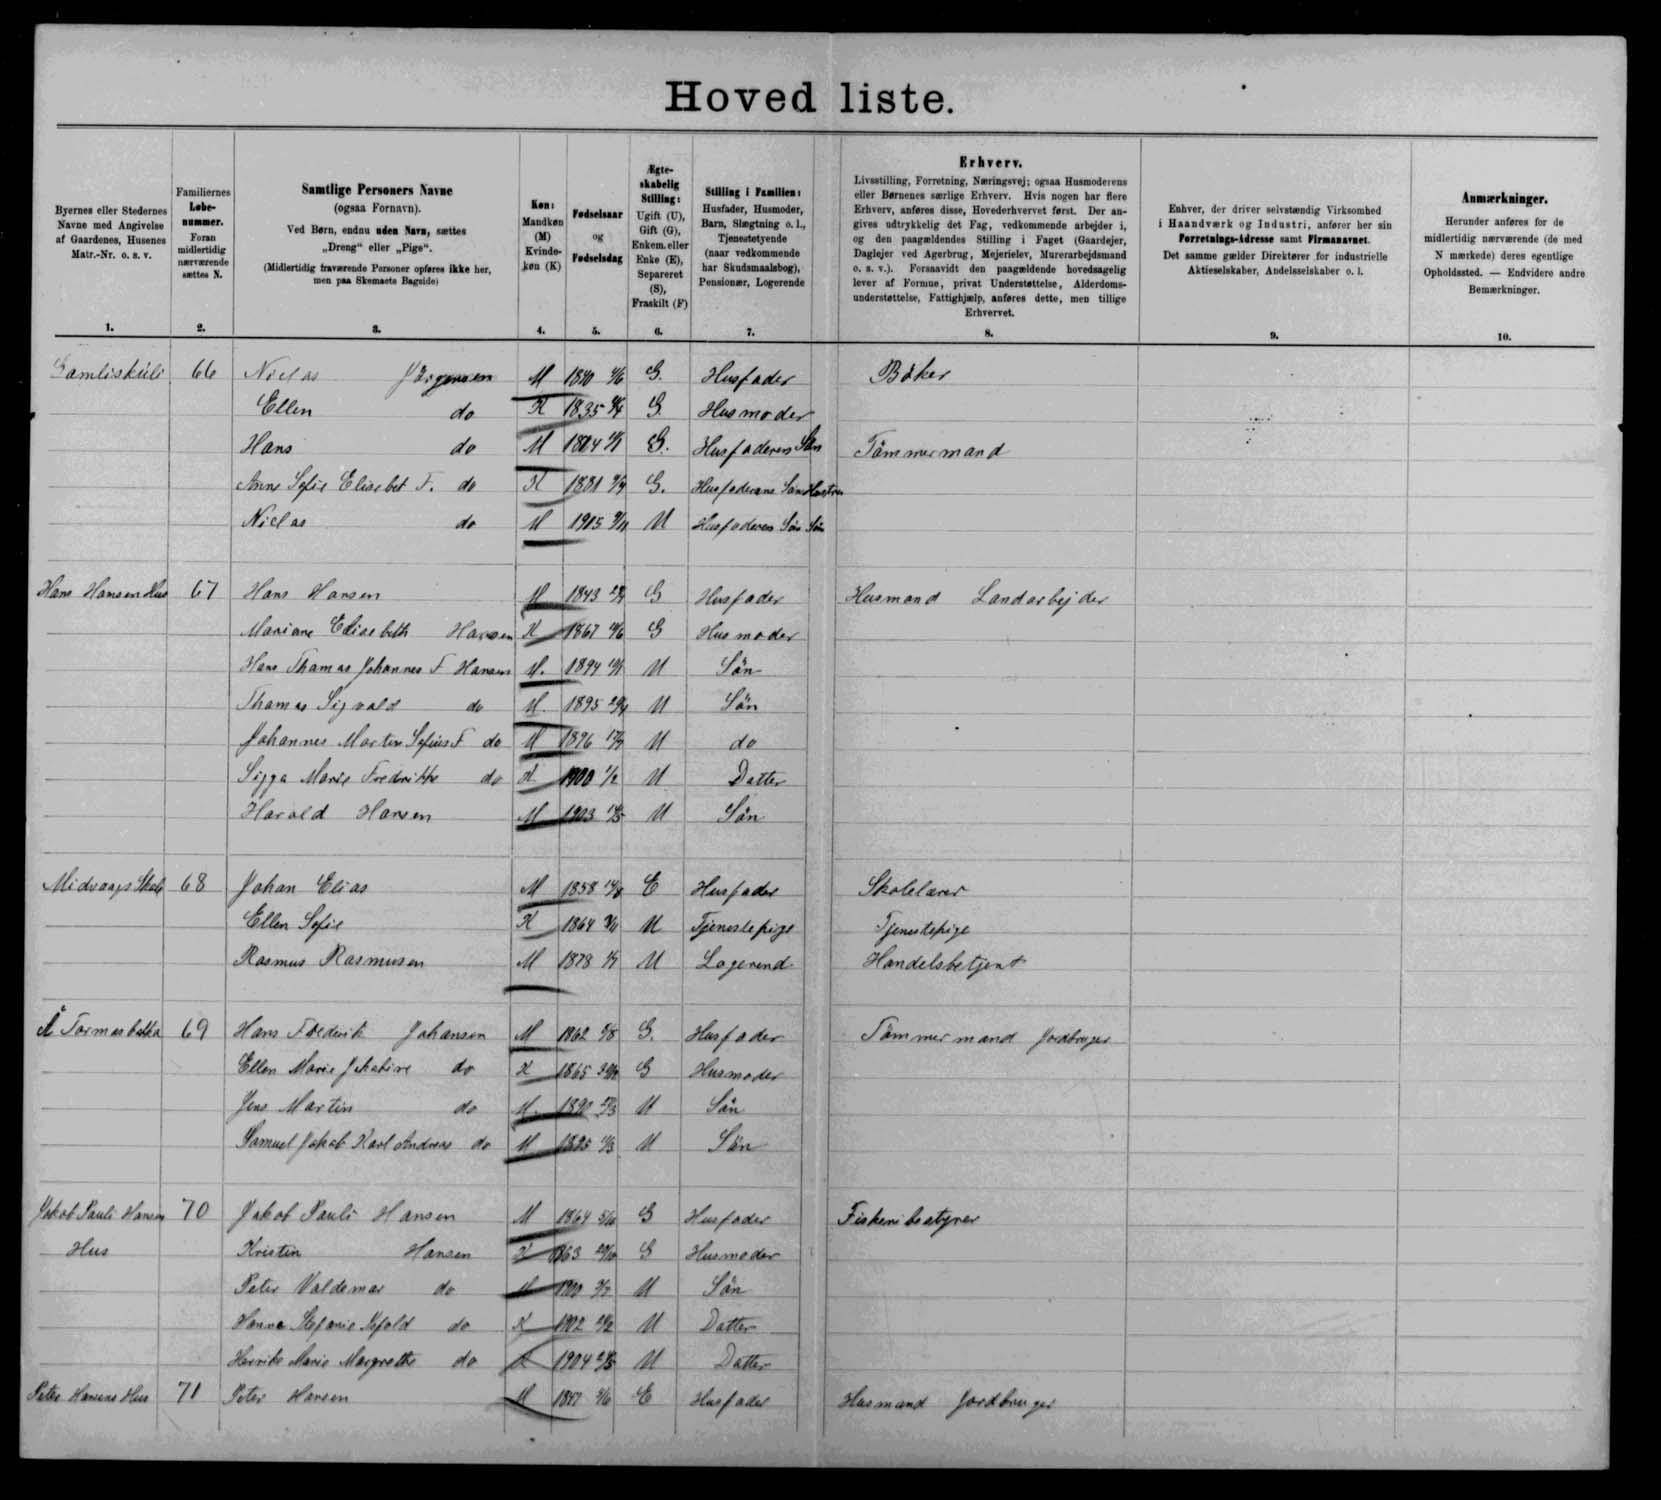 Hoved liste.
Byernes eller Stedernes Navne med Angivelse af Gaardenes, Husenes Matr.-Nr. o. s. v.
Familiernes Løbenummer. Foran midlertidig nærværende sættes N.
Samtlige Personers Navne
(ogsaa Fornavn).
Ved Børn, endnu uden Navn, sættes
„Dreng“ eller „Pige“.
(Midlertidig fraværende Personer opføres ikke her,
men paa Skemaets Bagside)
Køn: Mandkøn (M) Kvindekøn (K)
Fødselsaar og Fødselsdag
Ægteskabelig Stilling: Ugift (U), Gift (G), Enkem. eller Enke (E), Separeret (S), Fraskilt (F)
Stilling i Familien: Husfader, Husmoder, Barn, Slægtning o. l., Tjenestetyende (naar vedkommende har Skudsmaalsbog), Pensionær, Logerende
Erhverv.
Livsstilling, Forretning, Næringsvej; ogsaa Husmoderens
eller Børnenes særlige Erhverv. Hvis nogen har flere
Erhverv, anføres disse, Hovederhvervet først. Der an-
gives udtrykkelig det Fag, vedkommende arbejder i,
og den paagældendes Stilling i Faget (Gaardejer,
Daglejer ved Agerbrug, Mejerielev, Murerarbejdsmand
o. s. v.). Forsaavidt den paagældende hovedsagelig
lever af Formue, privat Understøttelse, Alderdoms-
understøttelse, Fattighjælp, anføres dette, men tillige
Erhvervet.
Enhver, der driver selvstændig Virksomhed
i Haandværk og Industri, anfører her sin
Forretnings-Adresse samt Firmanavnet.
Det samme gælder Direktører for industrielle
Aktieselskaber, Andelsselskaber o. l.
Anmærkninger.
Herunder anføres for de
midlertidig nærværende (de med
N mærkede) deres egentlige
Opholdssted. — Endvidere andre
Bemærkninger.
1. 2. 3. 4. 5. 6. 7. 8. 9. 10.
Gamliskúli 66 Niclas Jörgensen M 1840 G. Husfader Böker
Ellen do K 1835 G. Husmoder
Hans do M G. Husfaderens Sön Tömmermand
Anne Sofie Elisebet F. do K 1881 G. Husfaderens Söns Hustru
Niclas do M 1905 U Husfaderen Söns Sön
Hans Hansen Hus 67 Hans Hansen M 1843 G Husfader Husmand Landarbejder
Mariane Elisebeth Hansen K 1867 G Husmoder
Hans Thomas Johannes F Hansen M. 1894 U Sön
Thomas Sigvald do M. 1895 U Sön
Johannes Martin Sofius F do M 1896 U do
Sigga Marie Fredrikke do K 1900 1/2 U Datter
Harald Hansen M 1903 U Sön
Midvaags Skole 68 Johan Elias M 1858 E Husfader Skolelærer
Ellen Sofie K 1864 U Tjenestepige Tjenestepige
Rasmus Rasmusen M 1878 U Logerend Handelsbetjent
69 Hans Frederik Johansen M 1862 G. Husfader Tömmermand Jordbruger
Ellen Marie Jakobine do K 1865 G Husmoder
Jens Martin do M. 1890 U Sön
Samuel Jakob Karl Andreas do M 1895 U Sön
Jakob Pauli Hansen 70 Jakob Pauli Hansen M 1864 G Husfader Fiskeribestyrer
Hus Kristin Hansen K 1863 G Husmoder
Peter Valdemar do M 1900 U Sön
Hanne Stefanie do K 1902 U Datter
Henrike Marie Margrethe do K 1904 U Datter
Peter Hansens Hus 71 Peter Hansen M 1847 E Husfader Husmand Jordbruger